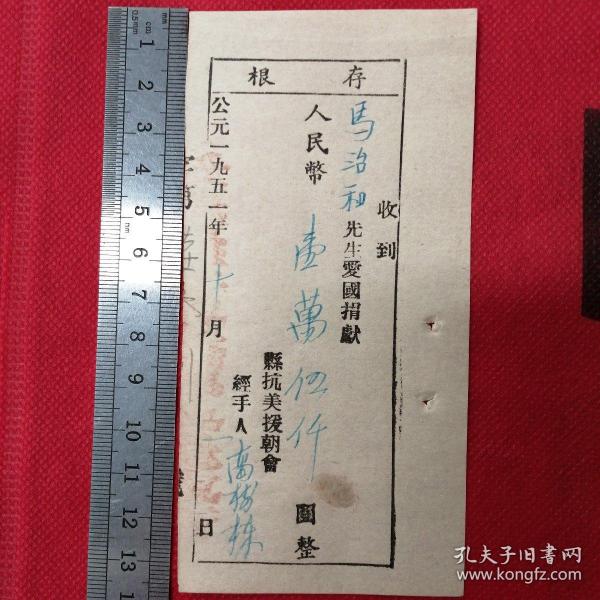 存根
收到
馬治和先生愛國捐獻
人民幣壹萬伍仟圓整
縣抗美援朝會
經手人
公元一九五一年十月 日
字第
孔夫子旧书网
www.kongfz.com
cm
mm
0.5mm
1
2
3
4
5
6
7
8
9
10
11
12
13